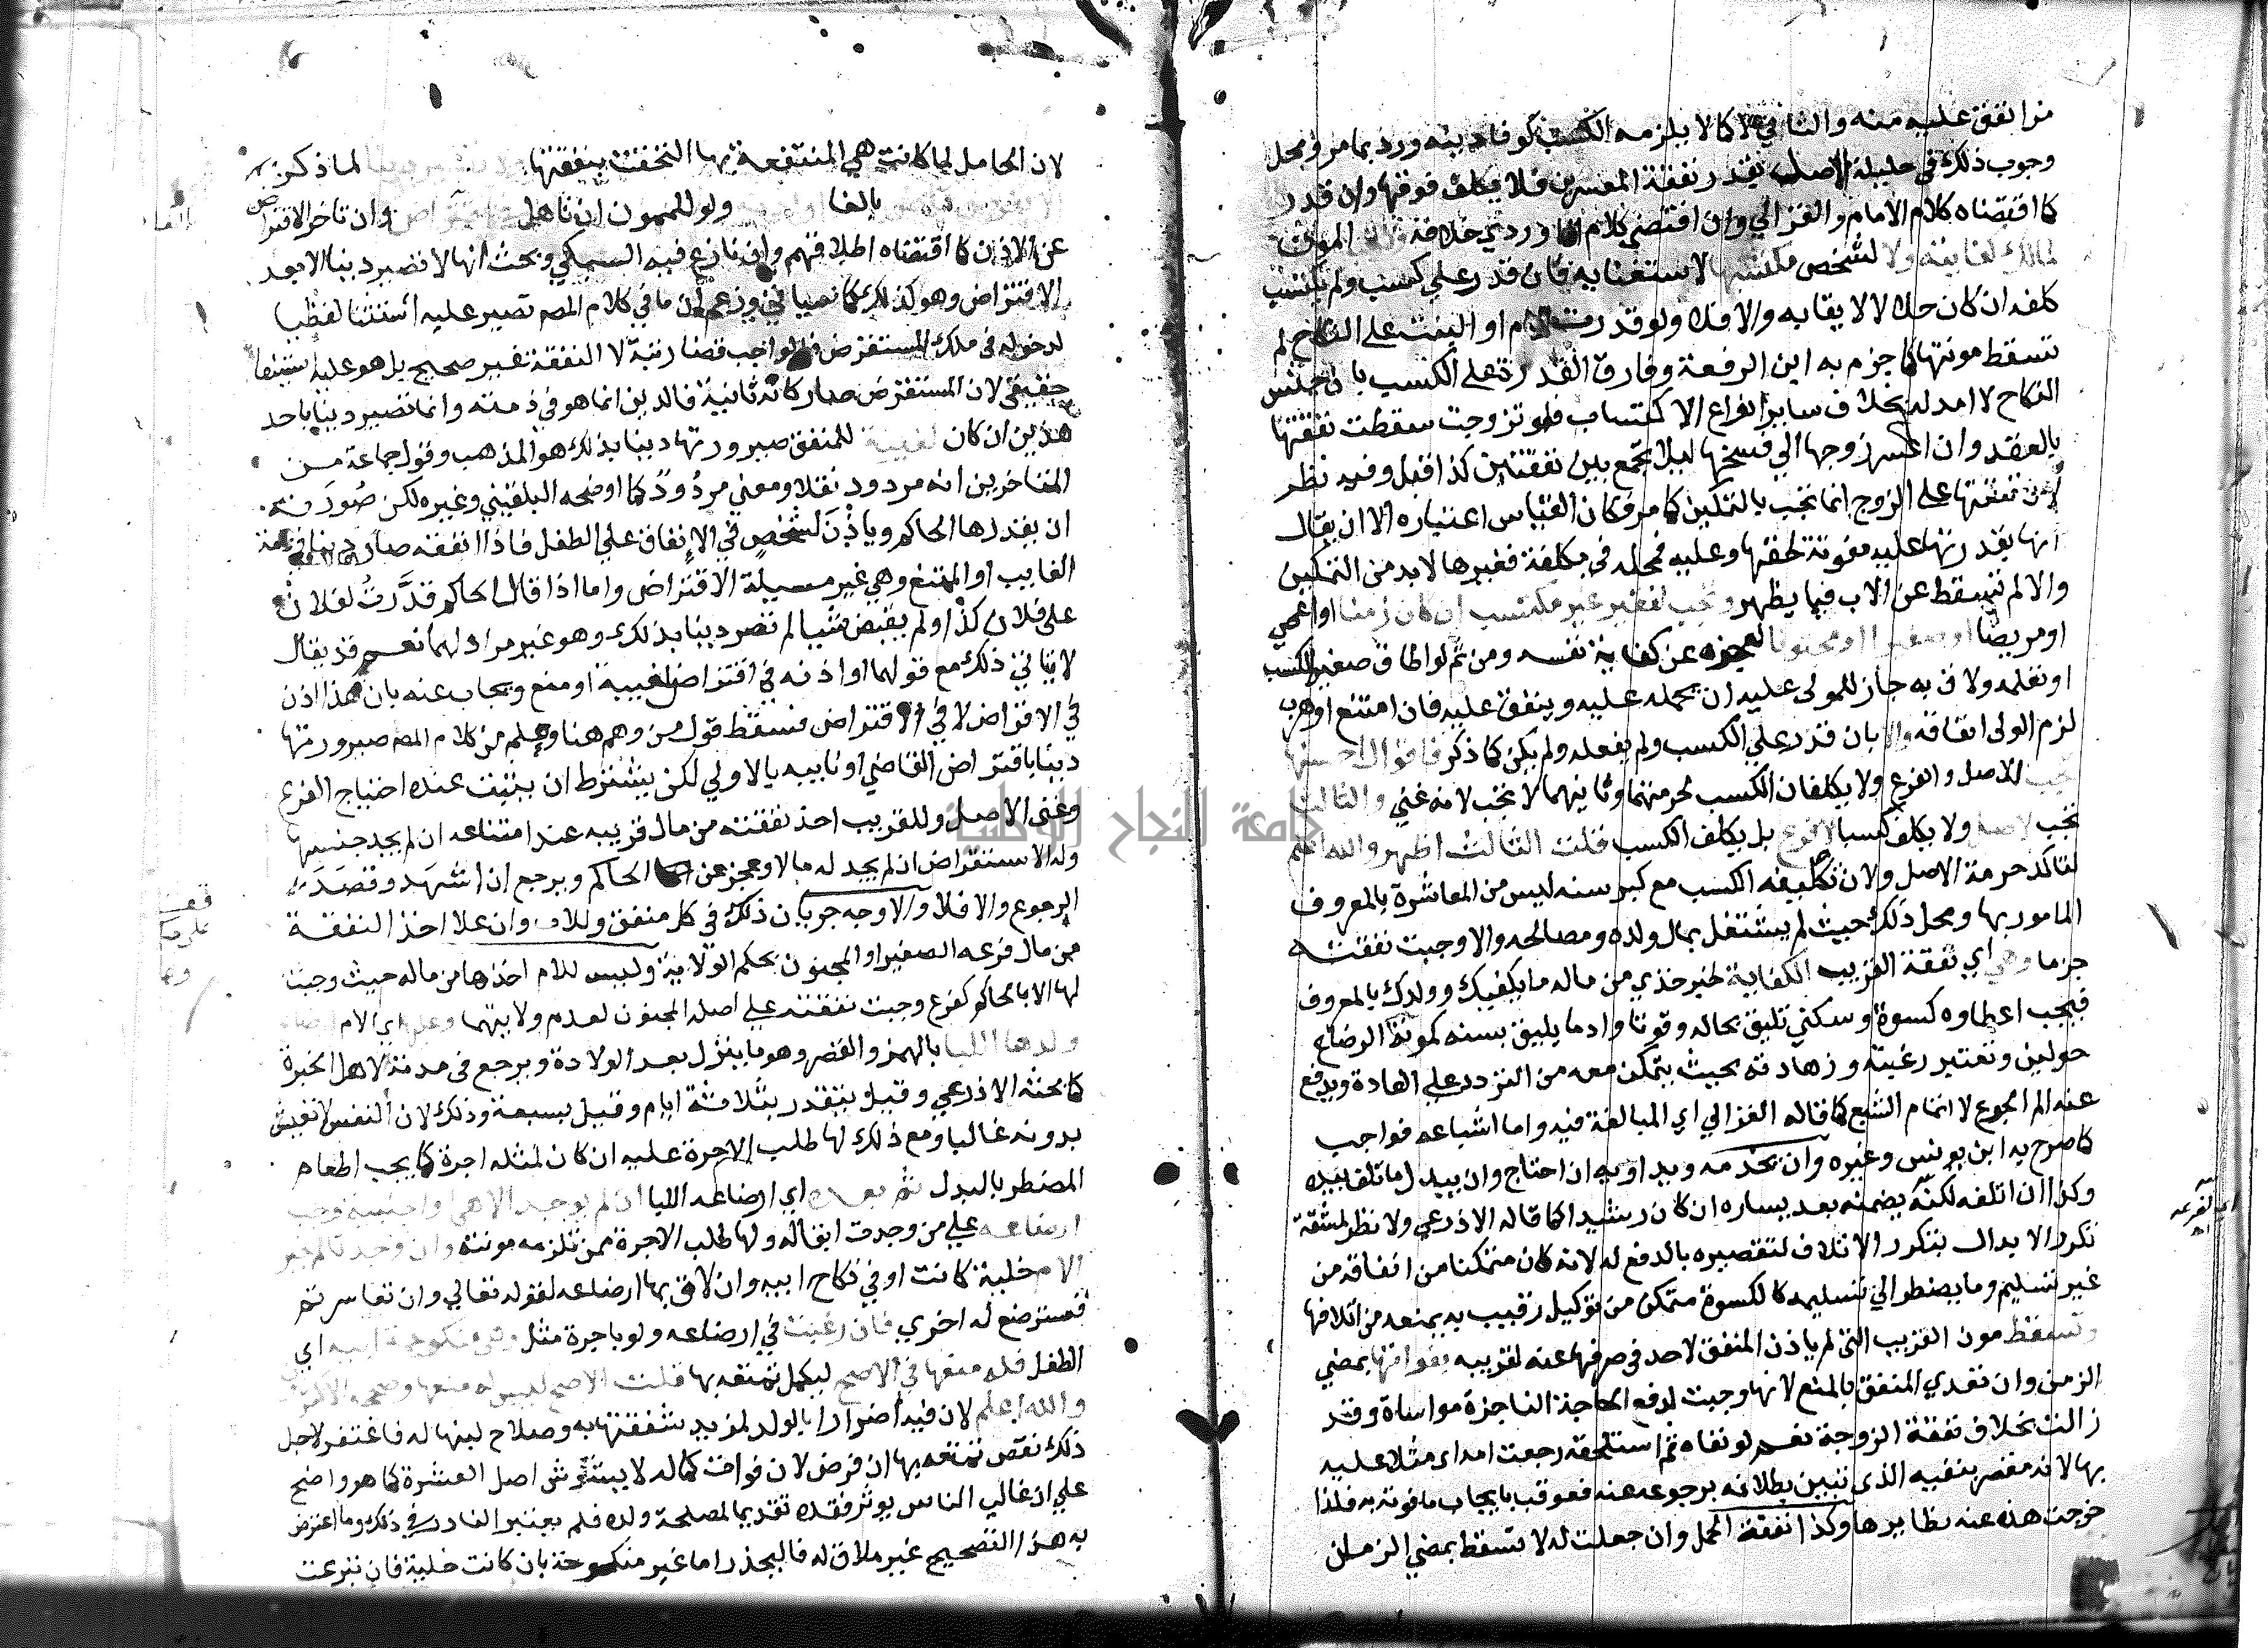 من انفق عليه منه والثاني لا كما لا يلزمه الكسب لوفا دينه ورد بما مر ومحل
وجوب ذلك في حليلة الاصل بقدر نفقة المعسرين فلا يكلف فوقها وان قدر
كما اقتضاه كلام الامام والغزالي وان اقتضى كلام الماوردي خلافه المون
لمالك كفايته ولا لشخص مكتسبها لاستغنايه فان قدر علي كسب ولم يكتسب
كلفه ان كان حلالا لايقا به والا فلا ولو قدرت الام او البنت على النكاح لم
تسقط مونتها كما جزم به ابن الرفعة وفارق القدرة على الكسب بان حبس
النكاح لا امد له بخلاف ساير انواع الاكتساب فلو تزوجت سقطت نفقتها
بالعقد وان اعسر زوجها الي فسخها ليلا تجمع بين نفقتين كذا قيل وفيه نظر
لان نفقتها على الزوج انما تجب بالتمكين كما مر فكان القياس اعتباره الا ان يقال
انها بقدرتها عليه مفوتة لحقها وعليه فمحله في مكلفة فغيرها لا بد من التمكين
والا لم تسقط عن الاب فيما يظهر وتجب لفقير غير مكتسب ان كان زمنا او اعمى
او مريضا او صغيرا او مجنونا لعجزه عن كفاية نفسه ومن ثم لو اطاق صغير الكسب
او تعلمه ولاق به جاز للولى عليه ان يحمله عليه وينفق عليه فان امتنع او هرب
لزم الولى انفاقه والا بان قدر علي الكسب ولم يفعله ولم يكن كما ذكر فاقوال احسنها
تجب للاصل والفرع ولا يكلفان الكسب لحرمتهما وثانيهما لا تجب لانه غني والثالث
تجب لاصل ولا يكلف كسبا لا فرع بل يكلف الكسب قلت الثالث اظهر والله اعلم
لتاكد حرمة الاصل ولان تكليفه الكسب مع كبر سنه ليس من المعاشرة بالمعروف
المامور بها ومحل ذلك حيث لم يشتغل بمال ولده ومصالحه والا وجبت نفقته
جزما وهي اي نفقة القريب الكفاية لخبر خذي من ماله ما يكفيك وولدك بالمعروف
فيجب اعطاوه كسوة وسكني تليق بحاله وقوتا وادما يليق بسنه كمونة الرضاع
حولين وتعتبر رغبته وزهادته بحيث يتمكن معه من التردد علي العادة ويدفع
عنه الم الجوع لا اتمام الشبع كما قاله الغزالي اي المبالغة فيه واما اشباعه فواجب
كما صرح به ابن يونس وغيره وان يخدمه ويداويه ان احتاج وان يبدل ما تلف بيده
وكذا ان اتلفه لكنه يضمنه بعد يساره ان كان رشيدا كما قاله الاذرعي ولا نظر لمشقة
تكرر الابدال بتكرر الاتلاف لتقصيره بالدفع له لانه كان متمكنا من انفاقه من
غير تسليم وما يضطر الي تسليمه كالكسوة متمكن من توكيل رقيب به يمنعه من اتلافها
وتسقط مون القريب التى لم ياذن المنفق لاحد في صرفها عنه لقريبه بفواتها بمضي
الزمن وان تعدي المنفق بالمنع لانها وجبت لدفع الحاجة الناجزة مواساة وقد
زالت بخلاف نفقة الزوجة نعم لو نفاه ثم استلحقه رجعت امه اى مثلا عليه
بها لانه مقصر بنفيه الذى تبين بطلانه برجوعه عنه فعوقب بايجاب ما فوته به فلذا
خرجت هذه عنه نظايرها وكذا نفقة الحمل وان جعلت له لا تسقط بمضي الزمان
لان الحامل لما كانت هي المنتفعة بها التحقت بنفقتها لما ذكر به
بالفا ولو للممون ان تاهل وان تاخر الاقتراض
عن الاذن كما اقتضاه اطلاقهم وان نازع فيه السبكي وبحث انها لا تصير دينا الا بعد
الاقتراض وهو كذلك كما ياتي وزعم ان ما في كلام المصه تصير عليه استثنا لفظيا
لدخوله في ملك المستقرض فالواجب قضا دينه لا النفقة غير صحيح بل هو عليه استثنا
حقيقي لان المستقرض صار كانه نايبه فالدين انما هو في ذمته وانما تصير دينا باحد
هذين ان كان لغيبة للمنفق صيرورتها دينا بذلك هو المذهب وقول جماعة من
المتاخرين انه مردود نقلا ومعني مردود كما اوضحه البلقيني وغيره لكن صورته
ان يقدرها الحاكم وياذن لشخص في الانفاق علي الطفل فاذا انفقه صار دينا في ذمة
الغايب او الممتنع وهي غير مسيلة الاقتراض واما اذا قال الحاكم قدرت لفلان
على فلان كذا ولم يقبض شيا لم تصر دينا بذلك وهو غير مراد لهما نعم قد يقال
لا ينافي ذلك مع قولهما او اذنه في اقتراض لغيبة او منع ويجاب عنه بان هذا اذن
في الاقراض لا في الاقتراض فسقط قول من وهم هنا وعلم من كلام المصه صيرورتها
دينا باقتراض القاضي او نايبه بالاولي لكن يشترط ان يثبت عنده احتياج الفرع
وغنى الاصل وللقريب اخذ نفقته من مال قريبه عند امتناعه ان لم يجد جنسها
وله الاستقراض ان لم يجد له مالا وعجز عن الحاكم ويرجع ان اشهد وقصد
الرجوع والا فلا والاوجه جريان ذلك في كل منفق وللاب وان علا اخذ النفقة
من مال فرعه الصغير او المجنون بحكم الولاية وليس للام اخذها من ماله حيث وجبت
لها الا بالحاكم كفرع وجبت نفقته علي اصله المجنون لعدم ولايتهما وعليها اي الام ارضاع
ولدها اللبا بالهمز والقصر وهو ما ينزل بعد الولادة ويرجع في مدته لاهل الخبرة
كما بحثه الاذرعي وقيل يتقدر بثلاثة ايام وقيل بسبعة وذلك لان النفس لا تعيش
بدونه غالبا ومع ذلك لها طلب الاجرة عليه ان كان لمثله اجرة كما يجب اطعام
المضطر بالبدل ثم بعده اي ارضاعه اللبا ان لم يوجد الا هي او اجنبية وجب
ارضاعه علي من وجدت ابقا له ولها طلب الاجرة ممن تلزمه مونته وان وجدتا لم تجبر
الام خلية كانت او في نكاح ابيه وان لاق بها ارضاعه لقوله تعالي وان تعاسرتم
فسترضع له اخري فان رغبت في ارضاعه ولو باجرة مثل وهي منكوحة ابيه اي
الطفل فله منعها في الاصح ليكمل تمتعه بها قلت الاصح ليس له منعها وصححه الاكثرون
والله اعلم لان فيه اضرارا بالولد لمزيد شفقتها به وصلاح لبنها له فاغتفر لاجل
ذلك نقص تمتعه بها ان فرض لان فوات كماله لا يشوش اصل العشرة كما هو واضح
علي ان غالب الناس يوثر فقده تقديما لمصلحة ولده فلم يعتبر النادر في ذلك وما اعترض
به هذا التصحيح غير ملاق له فاليحذر اما غير منكوحة بان كانت خلية فان تبرعت
جامعة النجاح الوطنية